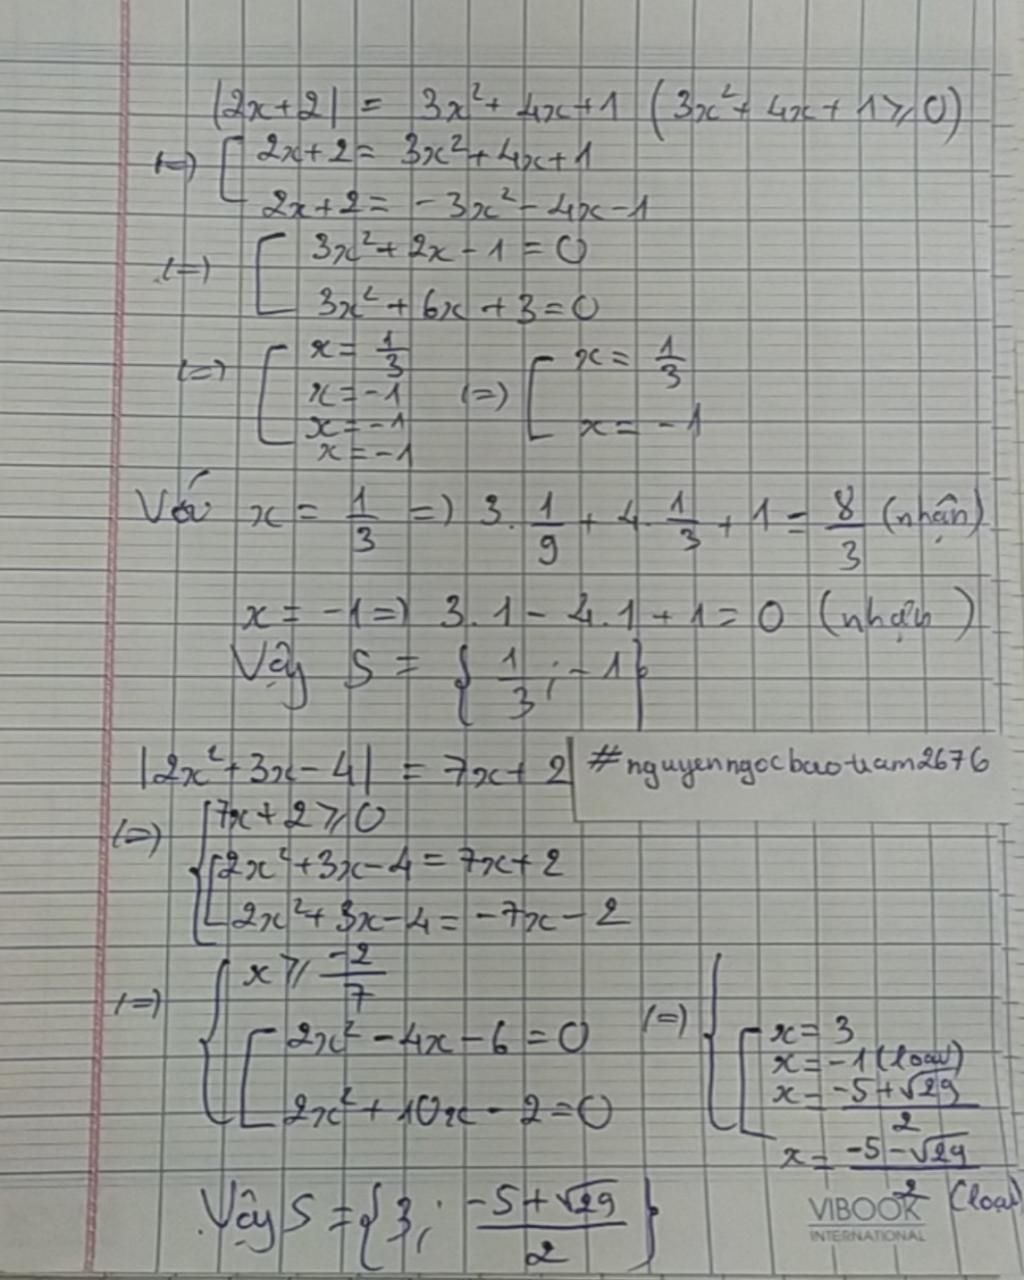 |2x+2| = 3x²+ 4x+1 (3x²+ 4x + 1 ⩾ 0)
(=) [ 2x+2 = 3x²+4x+1
2x+2 = -3x²-4x-1
(=) [ 3x²+2x-1 = 0
3x²+6x+3=0
(=) [ x = 1/3 (=) [ x = 1/3
x=-1
x=-1 x = -1
x=-1
Với x = 1/3 =) 3. 1/9 + 4. 1/3 + 1 = 8/3 (nhận)
x = -1 =) 3.1 - 4.1 + 1 = 0 (nhận)
Vậy S = { 1/3 ; -1 }
|2x²+3x-4| = 7x+2 #nguyenngocbaotram2676
(=) { 7x+2 ⩾ 0
[ 2x²+3x-4 = 7x+2
2x²+3x-4 = -7x-2
(=) { x ⩾ -2/7
[ 2x²-4x-6=0 (=) { [ x=3
x=-1 (loại)
x= (-5+√29)/2
2x²+10x-2=0
x= (-5-√29)/2 (loại)
Vậy S = { 3 ; (-5+√29)/2 }
VIBOOK
INTERNATIONAL